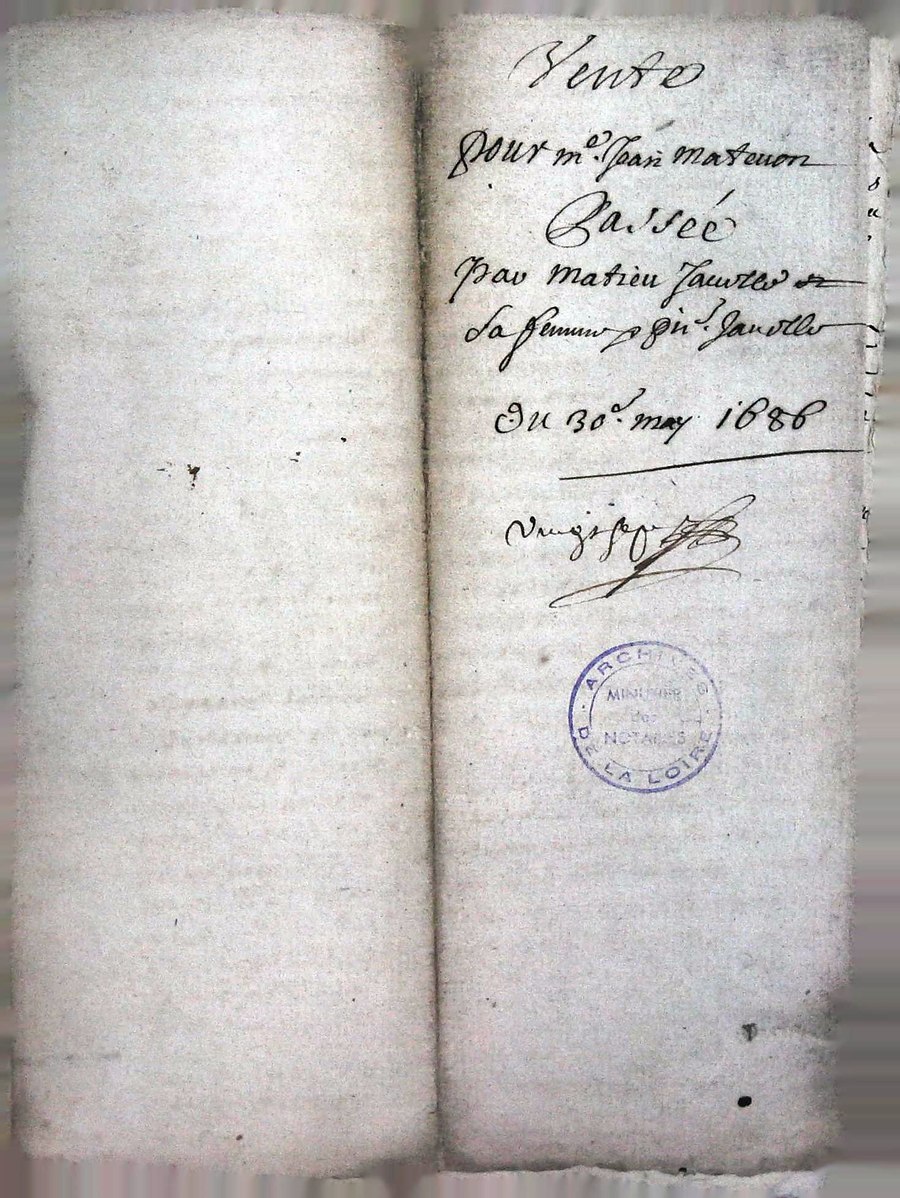 Vente
pour me. Jean matevon
Passée
Par matieu Javelle et
Sa femme
Du 30e. may 1686
ARCHIVES
DE LA LOIRE
MINUTIER
des
NOTAIRES